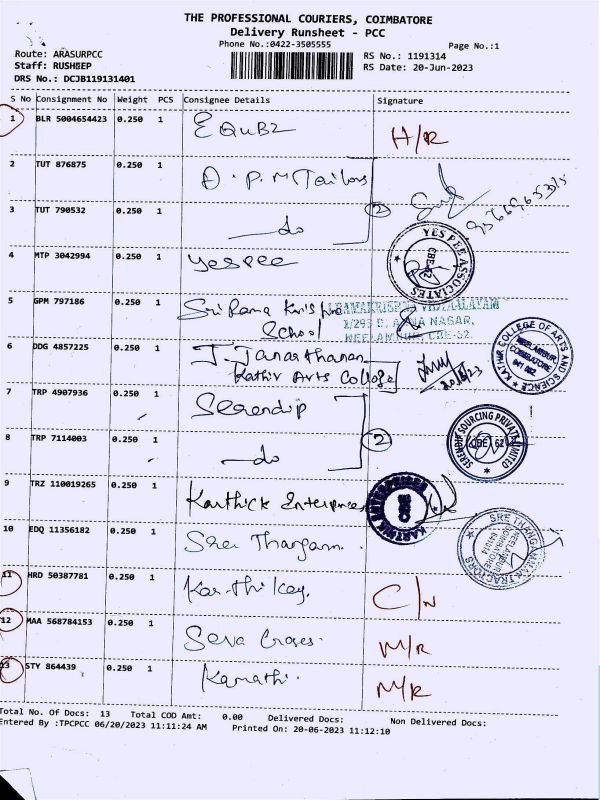 THE PROFESSIONAL COURIERS, COIMBATORE
Delivery Runsheet - PCC
Phone No.:0422-3505555
Page No.:1
Route: ARASURPCC
RS No.: 1191314
Staff: RUSHEEP
RS Date: 20-Jun-2023
DRS No.: DCJB119131401
S No Consignment No Weight PCS Consignee Details Signature
1 BLR 5004654423 0.250 1 EQUBZ H/R
2 TUT 876875 0.250 1 D.P.M Tailors
3 TUT 790532 0.250 1 do 2
4 MTP 3042994 0.250 1 yespee YES PEE ASSOCIATES CBE-62
5 GPM 797186 0.250 1 Sri Rama Krishna
School
NAGAR,
CBE-62.
6 DDG 4857225 0.250 1 J. Janarthanan
Kathir Arts College 20/6/23 KATHIR COLLEGE OF ARTS AND SCIENCE NEELAMBUR COIMBATORE 641 062
7 TRP 4907936 0.250 1 Serendip
8 TRP 7114003 0.250 1 do 2 SERENDIP SOURCING PRIVATE LIMITED CBE 62
9 TRZ 110019265 0.250 1 Karthick Enterprises KARTHIK ENTERPRISES
10 EDQ 11356182 0.250 1 Sree Thangam SRE THANGAM TRACTORS
11 HRD 50387781 0.250 1 Karthikay. C/N
12 MAA 568784153 0.250 1 Seva M/R
13 STY 864439 0.250 1 Kamathi. M/R
Total No. Of Docs: 13 Total COD Amt: 0.00 Delivered Docs: Non Delivered Docs:
Entered By :TPCPCC 06/20/2023 11:11:24 AM Printed On: 20-06-2023 11:12:10